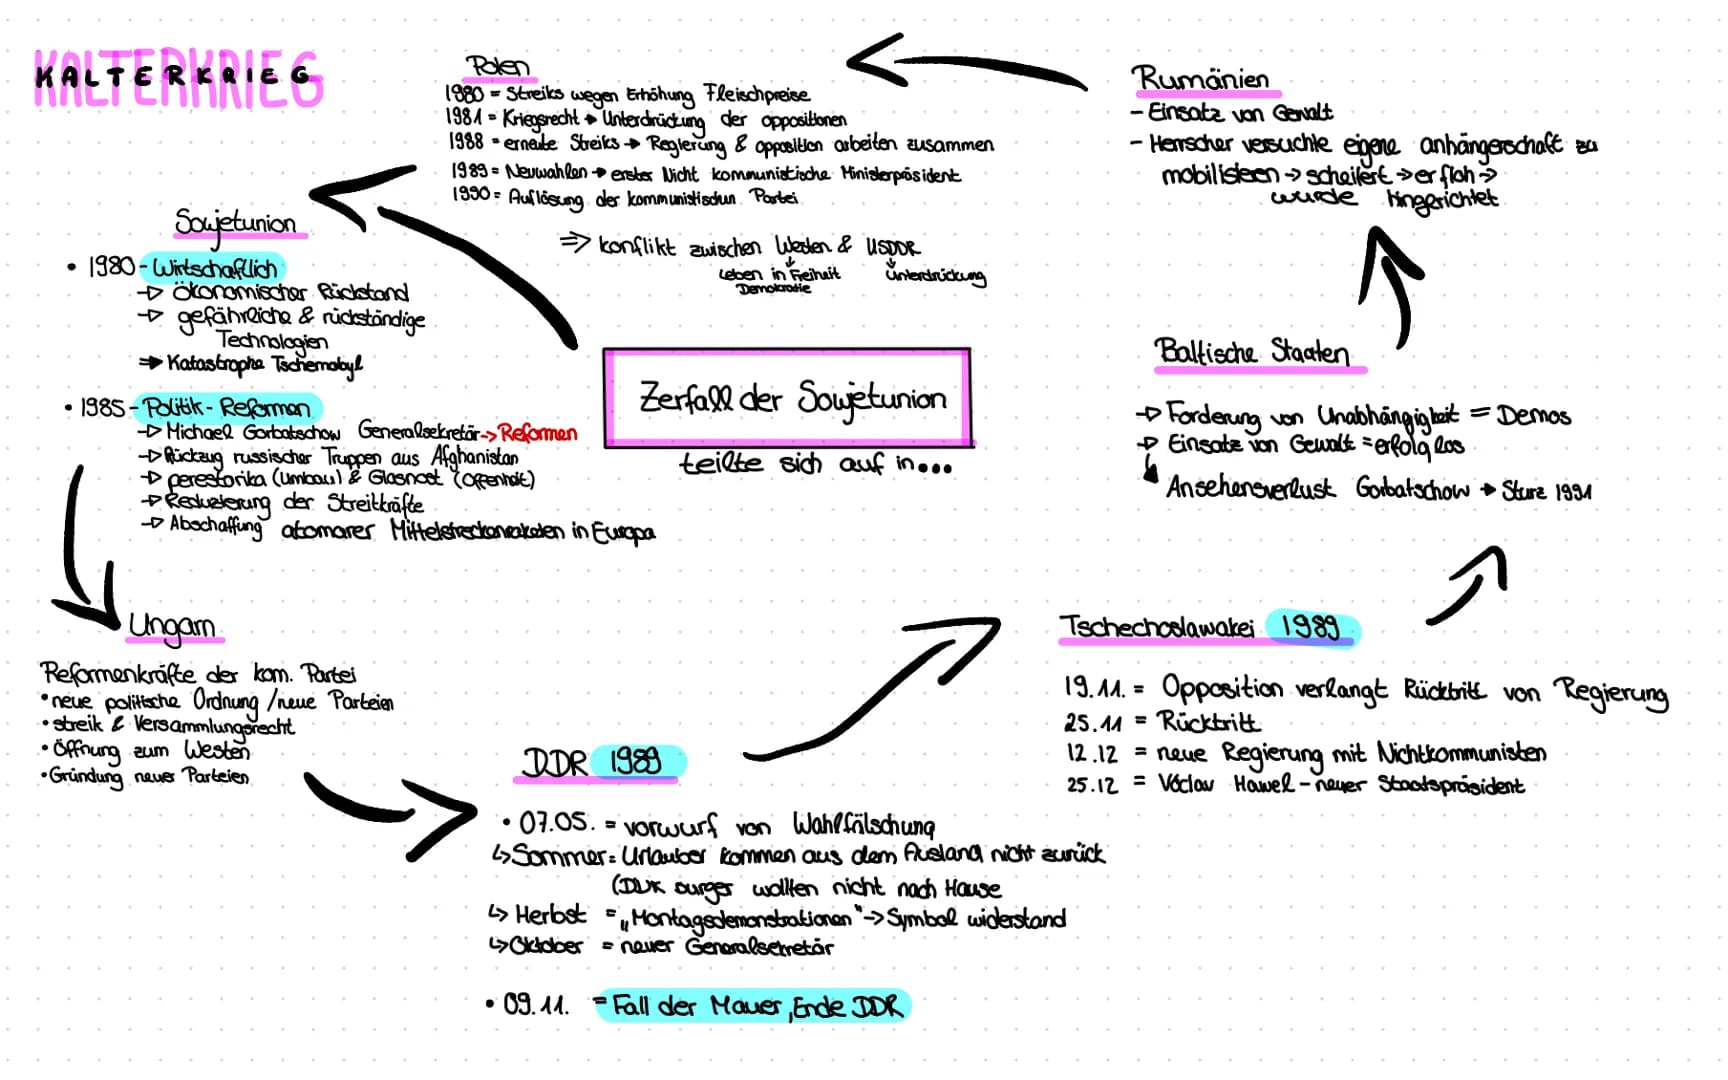 KALTERKRIEG
Polen
1980 = Streiks wegen Erhöhung Fleischpreise
1981 = Kriegsrecht → Unterdrückung der oppositionen
1988 = erneute Streiks → Regierung & opposition arbeiten zusammen
1989 = Neuwahlen → erster Nicht kommunistische Ministerpräsident
1990 = Auflösung der kommunistischen Partei
⇒ konflikt zwischen Westen & USDDR
Leben in Freiheit
Demokratie
Unterdrückung
Zerfall der Sowjetunion
teilte sich auf in...
Sowjetunion
• 1980 - Wirtschaftlich
→ ökonomischer Rückstand
→ gefährliche & rückständige
Technologien
⇒ Katastrophe Tschernobyl
• 1985 - Politik - Reformen
→ Michael Gorbatschow Generalsekretär -> Reformen
→ Rückzug russischer Truppen aus Afghanistan
→ perestorika (Umbau) & Glasnost (Offenheit)
→ Reduzierung der Streitkräfte
→ Abschaffung atomarer Mittelstreckenraketen in Europa
Ungarn
Reformenkräfte der kom. Partei
• neue politische Ordnung / neue Parteien
• streik & Versammlungsrecht
• Öffnung zum Westen
• Gründung neuer Parteien
DDR 1989
• 07.05. = vorwurf von Wahlfälschung
↳ Sommer = Urlauber kommen aus dem Ausland nicht zurück
wollten nicht nach Hause
↳ Herbst = „Montagsdemonstrationen" -> Symbol widerstand
↳ Oktober = neuer Generalsekretär
• 09.11. = Fall der Mauer, Ende DDR
Tschechoslawakei 1989
19.11. = Opposition verlangt Rücktritt von Regierung
25.11 = Rücktritt
12.12 = neue Regierung mit Nichtkommunisten
25.12 = Václav Hawel - neuer Staatspräsident
Baltische Staaten
→ Forderung von Unabhängigkeit = Demos
→ Einsatz von Gewalt = erfolg los
↳ Ansehensverlust Gorbatschow → Sturz 1991
Rumänien
- Einsatz von Gewalt
- Herrscher versuchte eigene anhängerschaft zu
mobilisieen -> scheitert -> er floh ->
wurde hingerichtet